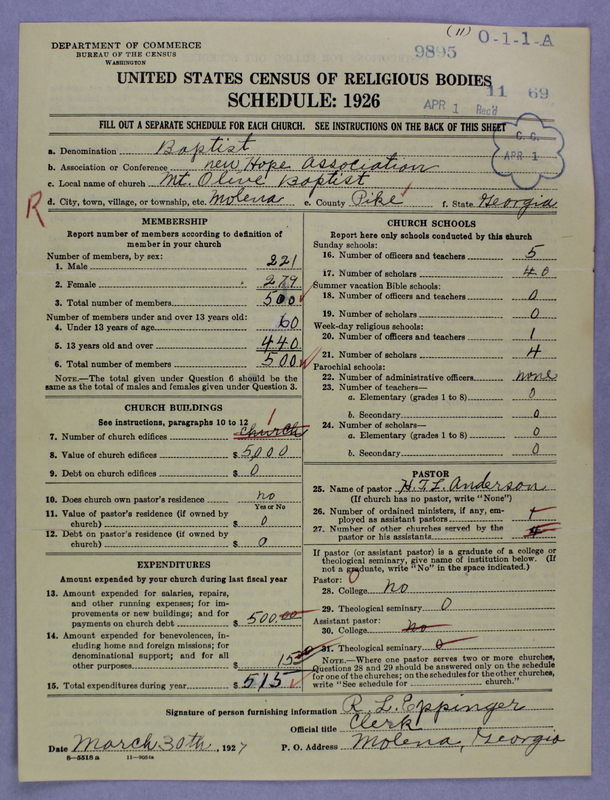 (11) O-1-1-A
DEPARTMENT OF COMMERCE
BUREAU OF THE CENSUS
WASHINGTON
9895
UNITED STATES CENSUS OF RELIGIOUS BODIES
SCHEDULE: 1926
11 69
APR 1 Rec'd
FILL OUT A SEPARATE SCHEDULE FOR EACH CHURCH. SEE INSTRUCTIONS ON THE BACK OF THIS SHEET
C. G.
APR 1
a. Denomination Baptist
b. Association or Conference new Hope Association
c. Local name of church Mt. Olive Baptist
d. City, town, village, or township, etc. Molena e. County Pike f. State Georgia
R
MEMBERSHIP
Report number of members according to definition of
member in your church
Number of members, by sex:
1. Male 221
2. Female 279
3. Total number of members 500
Number of members under and over 13 years old:
4. Under 13 years of age 60
5. 13 years old and over 440
6. Total number of members 500
NOTE.—The total given under Question 6 should be the
same as the total of males and females given under Question 3.
CHURCH BUILDINGS
See instructions, paragraphs 10 to 12
1
7. Number of church edifices church
8. Value of church edifices $ 5000
9. Debt on church edifices $ 0
10. Does church own pastor's residence no
Yes or No
11. Value of pastor's residence (if owned by
church) $ 0
12. Debt on pastor's residence (if owned by
church) $ 0
EXPENDITURES
Amount expended by your church during last fiscal year
13. Amount expended for salaries, repairs,
and other running expenses; for im-
provements or new buildings; and for
payments on church debt $ 500.00
14. Amount expended for benevolences, in-
cluding home and foreign missions; for
denominational support; and for all
other purposes $ 15 00
15. Total expenditures during year $ 515
CHURCH SCHOOLS
Report here only schools conducted by this church
Sunday schools:
16. Number of officers and teachers 5
17. Number of scholars 40
Summer vacation Bible schools:
18. Number of officers and teachers 0
19. Number of scholars 0
Week-day religious schools:
20. Number of officers and teachers 1
21. Number of scholars 4
Parochial schools:
22. Number of administrative officers none
23. Number of teachers—
a. Elementary (grades 1 to 8) 0
b. Secondary 0
24. Number of scholars—
a. Elementary (grades 1 to 8) 0
b. Secondary 0
PASTOR
25. Name of pastor H.T.L. Anderson
(If church has no pastor, write "None")
26. Number of ordained ministers, if any, em-
ployed as assistant pastors
27. Number of other churches served by the
pastor or his assistants
If pastor (or assistant pastor) is a graduate of a college or
theological seminary, give name of institution below. (If
not a graduate, write "No" in the space indicated.)
Pastor: 0
28. College no
29. Theological seminary 0
Assistant pastor:
30. College no
31. Theological seminary 0
NOTE.—Where one pastor serves two or more churches,
Questions 28 and 29 should be answered only on the schedule
for one of the churches; on the schedules for the other churches,
write "See schedule for church."
Signature of person furnishing information R. L. Eppinger
Official title Clerk
Date March 30th, 1927 P. O. Address Molena, Georgia
8—5518 a 11—9054a